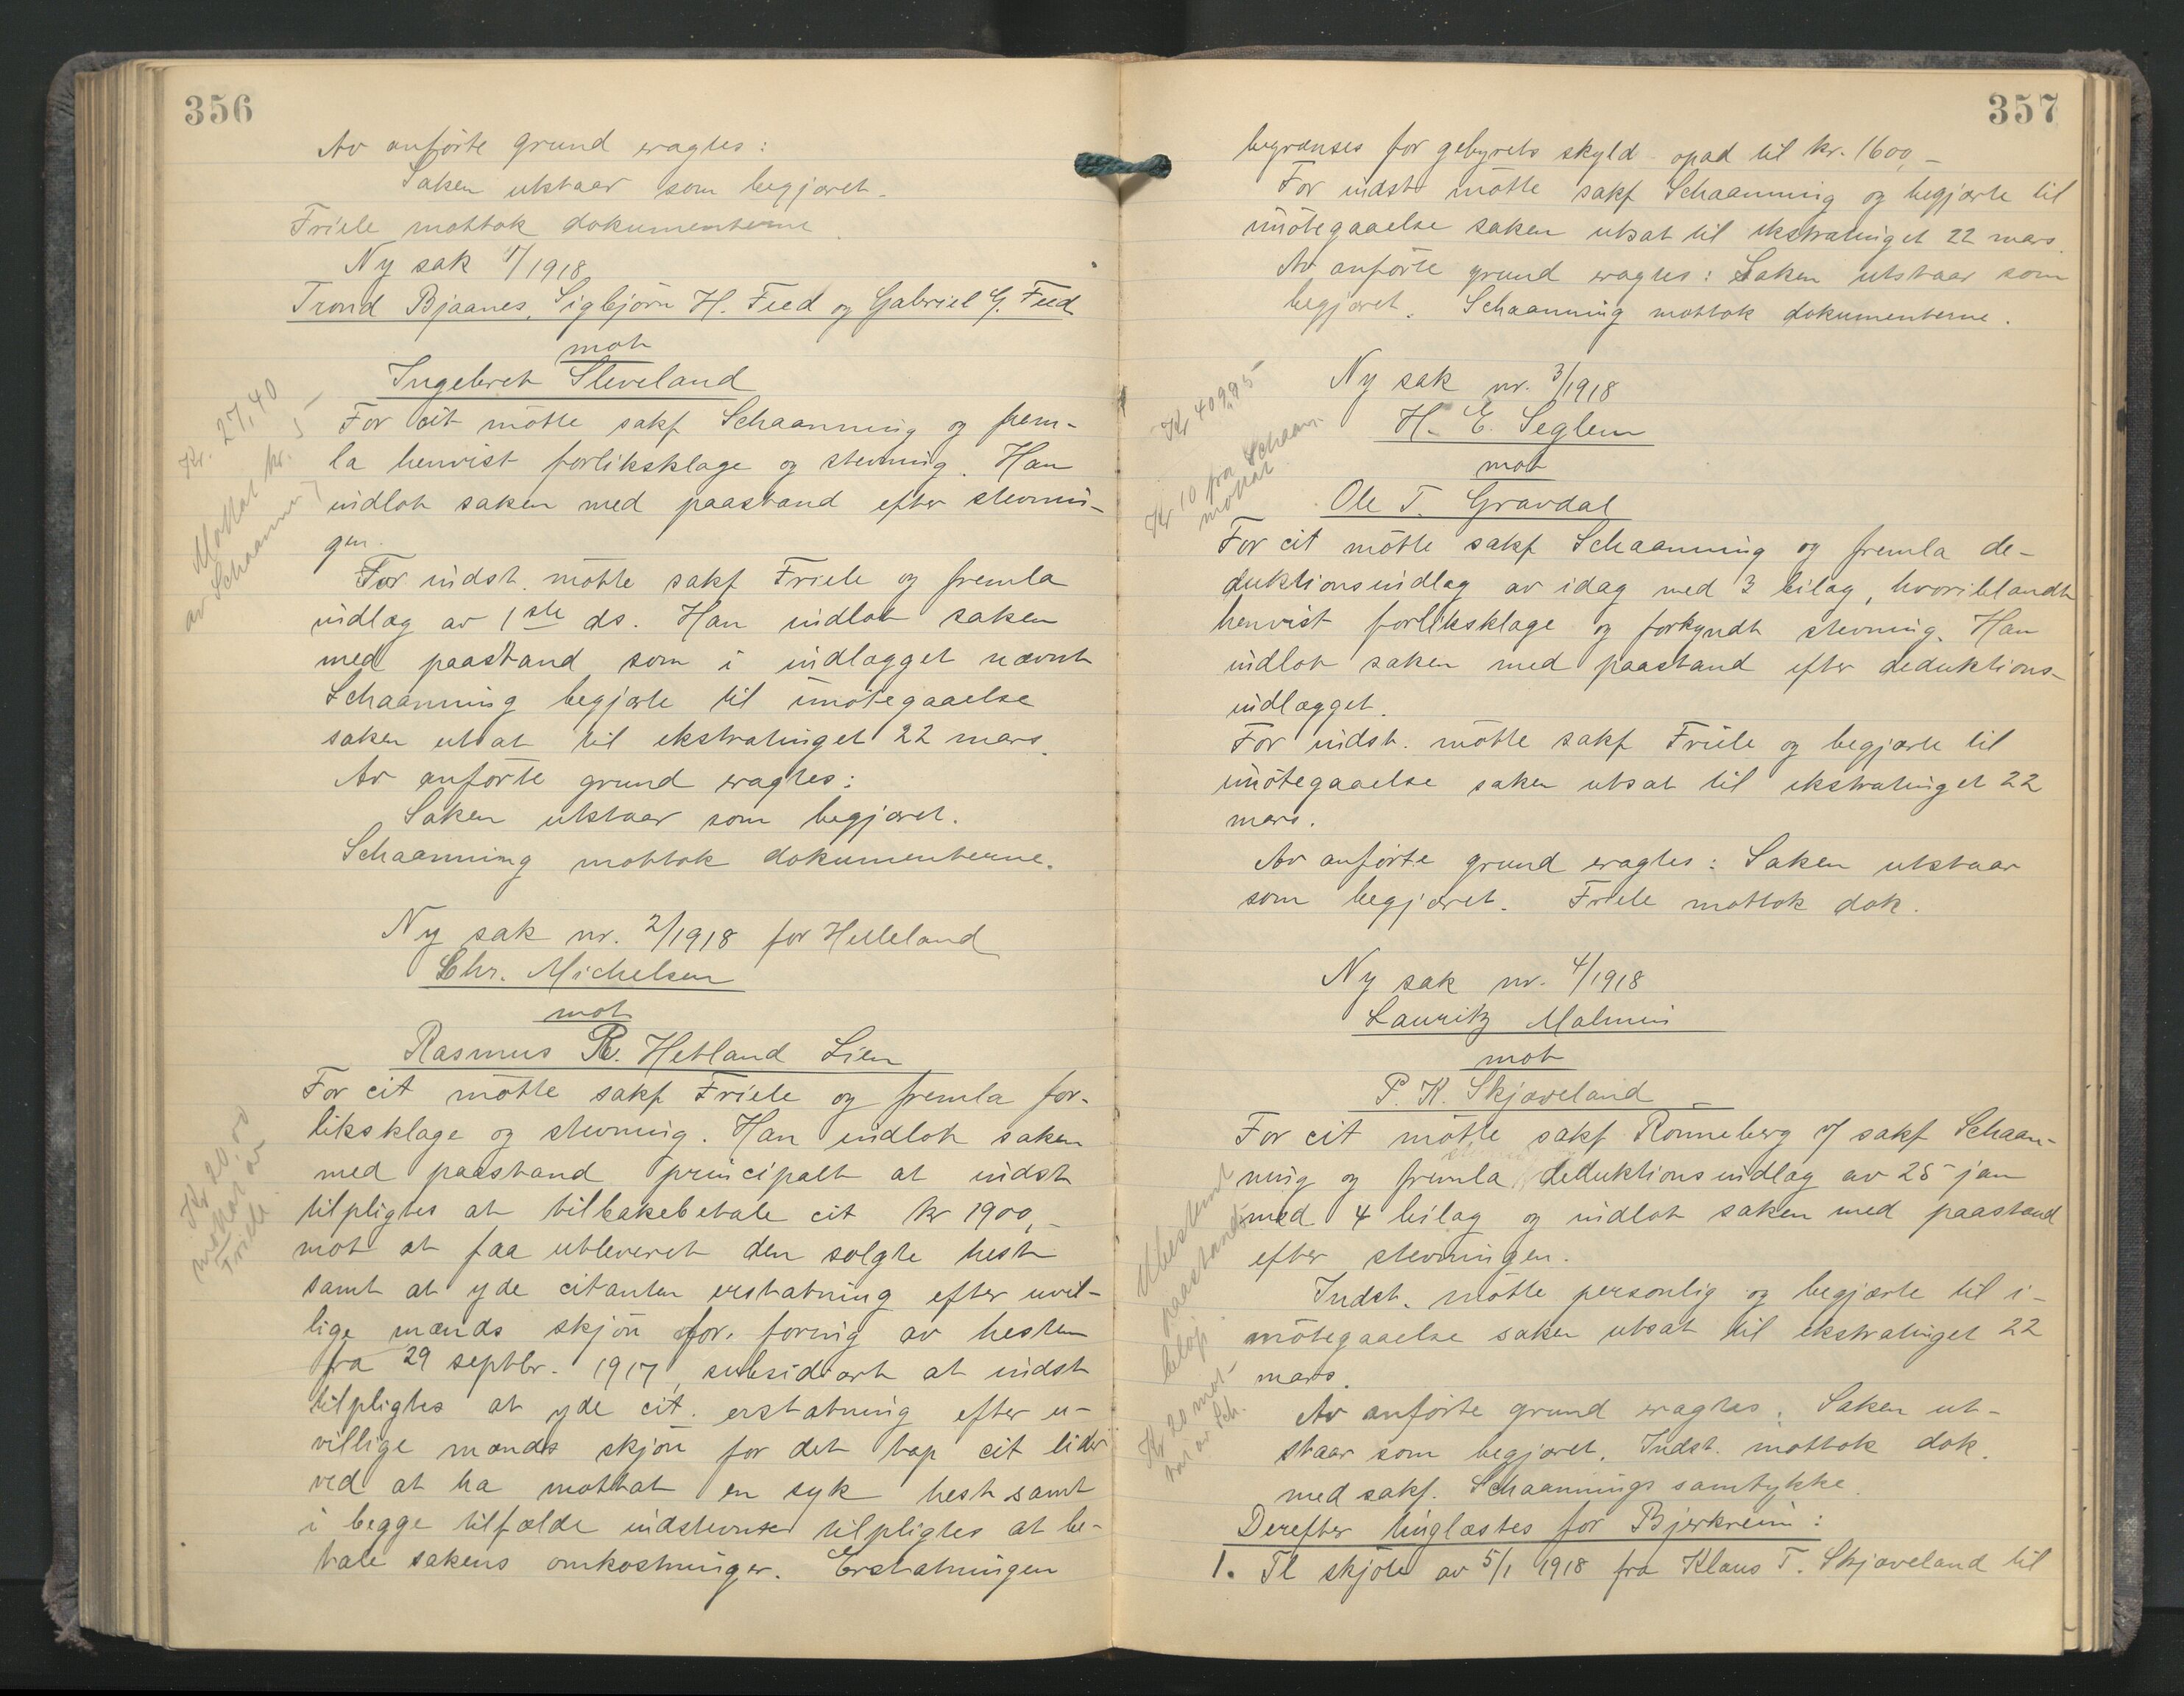 356
Av anförte grund eragtes:
Saken utstaar som begjæret.
Friele mottok dokumenterne.
Ny sak 1/1918
Trond Bjaanes, Sigbjörn H. Feed og Gabriel G. Feed
mot
Ingebret Sleveland
Kr. 27,40
Mottat kr. 5 –
av Schaanning
For cit mötte sakf Schaanning og frem-
la henvist forliksklage og stevning. Han
indlot saken med paastand efter stevnin-
gen.
For indst. mötte sakf Friele og fremla
indlæg av 1ste ds. Han indlot saken
med paastand som i indlægget nævnt
Schaanning begjærte til imötegaaelse
saken utsat til ekstratinget 22 mars.
Av anförte grund eragtes:
Saken utstaar som begjæret.
Schaanning mottok dokumenterne.
Ny sak nr. 2/1918 for Helleland
Chr. Michelsen
mot
Rasmus R. Hetland Lien
Kr 20,00
mottat av
Friele
For cit mötte sakf Friele og fremla for-
liksklage og stevning. Han indlot saken
med paastand principalt at indst
tilpligtes at tilbakebetale cit kr 1900,–
mot at faa utleveret den solgte hest
samt at yde citanten erstatning efter uvil-
lige mænds skjön for foring av hesten
fra 29 septbr. 1917, subsidiært at indst
tilpligtes at yde cit. erstatning efter u-
villige mænds skjön for det tap cit lider
ved at ha mottat en syk hest samt
i begge tilfælde indstevnte tilpligtes at be-
tale sakens omkostninger. Erstatningen
357
begrænses for gebyrets skyld opad til kr. 1600,–
For indst mötte sakf Schaanning og begjærte til
imötegaaelse saken utsat til ekstratinget 22 mars.
Av anförte grund eragtes: Saken utstaar som
begjæret. Schaanning mottok dokumenterne.
Ny sak nr. 3/1918
H. E. Seglem
mot
Ole T. Gravdal
Kr 409,95
Kr 10 fra Schaan.
mottat
For cit mötte sakf Schaanning og fremla de-
duktionsindlæg av idag med 3 bilag, hvoriblandt
henvist forliksklage og forkyndt stevning. Han
indlot saken med paastand efter deduktions-
indlægget.
For indst. mötte sakf Friele og begjærte til
imötegaaelse saken utsat til ekstratinget 22
mars.
Av anförte grund eragtes: Saken utstaar
som begjæret. Friele mottok dok.
Ny sak nr. 4/1918
Lauritz Malmin
mot
P. K. Skjæveland
Ubestemt
paastands-
beløp.
Kr 20 mot-
tat av Sch.
For cit mötte sakf Rönneberg f/ sakf Schaan-
ning og fremla deduktionsindlæg av 25 jan
med 4 bilag og indlot saken med paastand
efter stevningen.
Indst. mötte personlig og begjærte til i-
mötegaaelse saken utsat til ekstratinget 22
mars.
Av anförte grund eragtes: Saken ut-
staar som begjæret. Indst. mottok dok.
med sakf. Schaannings samtykke.
Derefter tinglæstes for Bjerkreim:
1. Tl skjöte av 5/1 1918 fra Klaus T. Skjæveland til